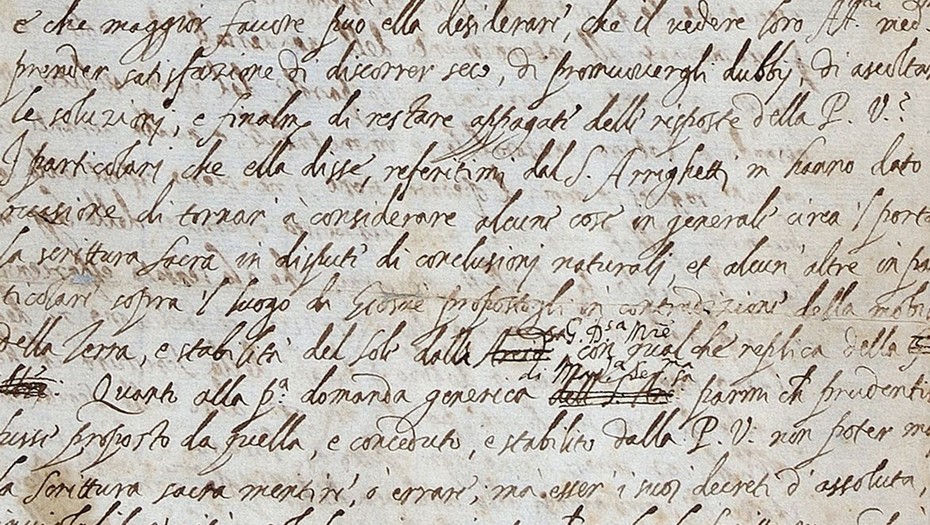 e che maggior favore può ella desiderare, che il vedere loro AA.me med
prender satisfazione di discorrer seco, di promuovergli dubbij, di ascoltar
le soluzioni, e finalm. di restare appagate delle risposte della P. V.?
I particolari che ella disse, referitimi dal S. Arrighetti m hanno dato
casione di tornar à considerare alcune cose in generale circa 'l porta
la scrittura Sacra in dispute di conclusioni naturali, et alcun'altre in pa
ticolare sopra 'l luogo di Giosuè propostogli in contradizione della mobil
G. D.sa Mre
della Terra, e stabilità del Sole dalla con qualche replica della
di Mad.a Ser.ma
Quanto alla p.a domanda generica parmi ch prudentis
fusse proposto da quella, e conceduto, e stabilito dalla P. V. non poter ma
la Scrittura sacra mentire, ò errare; ma esser i suoi decreti d'assoluta,